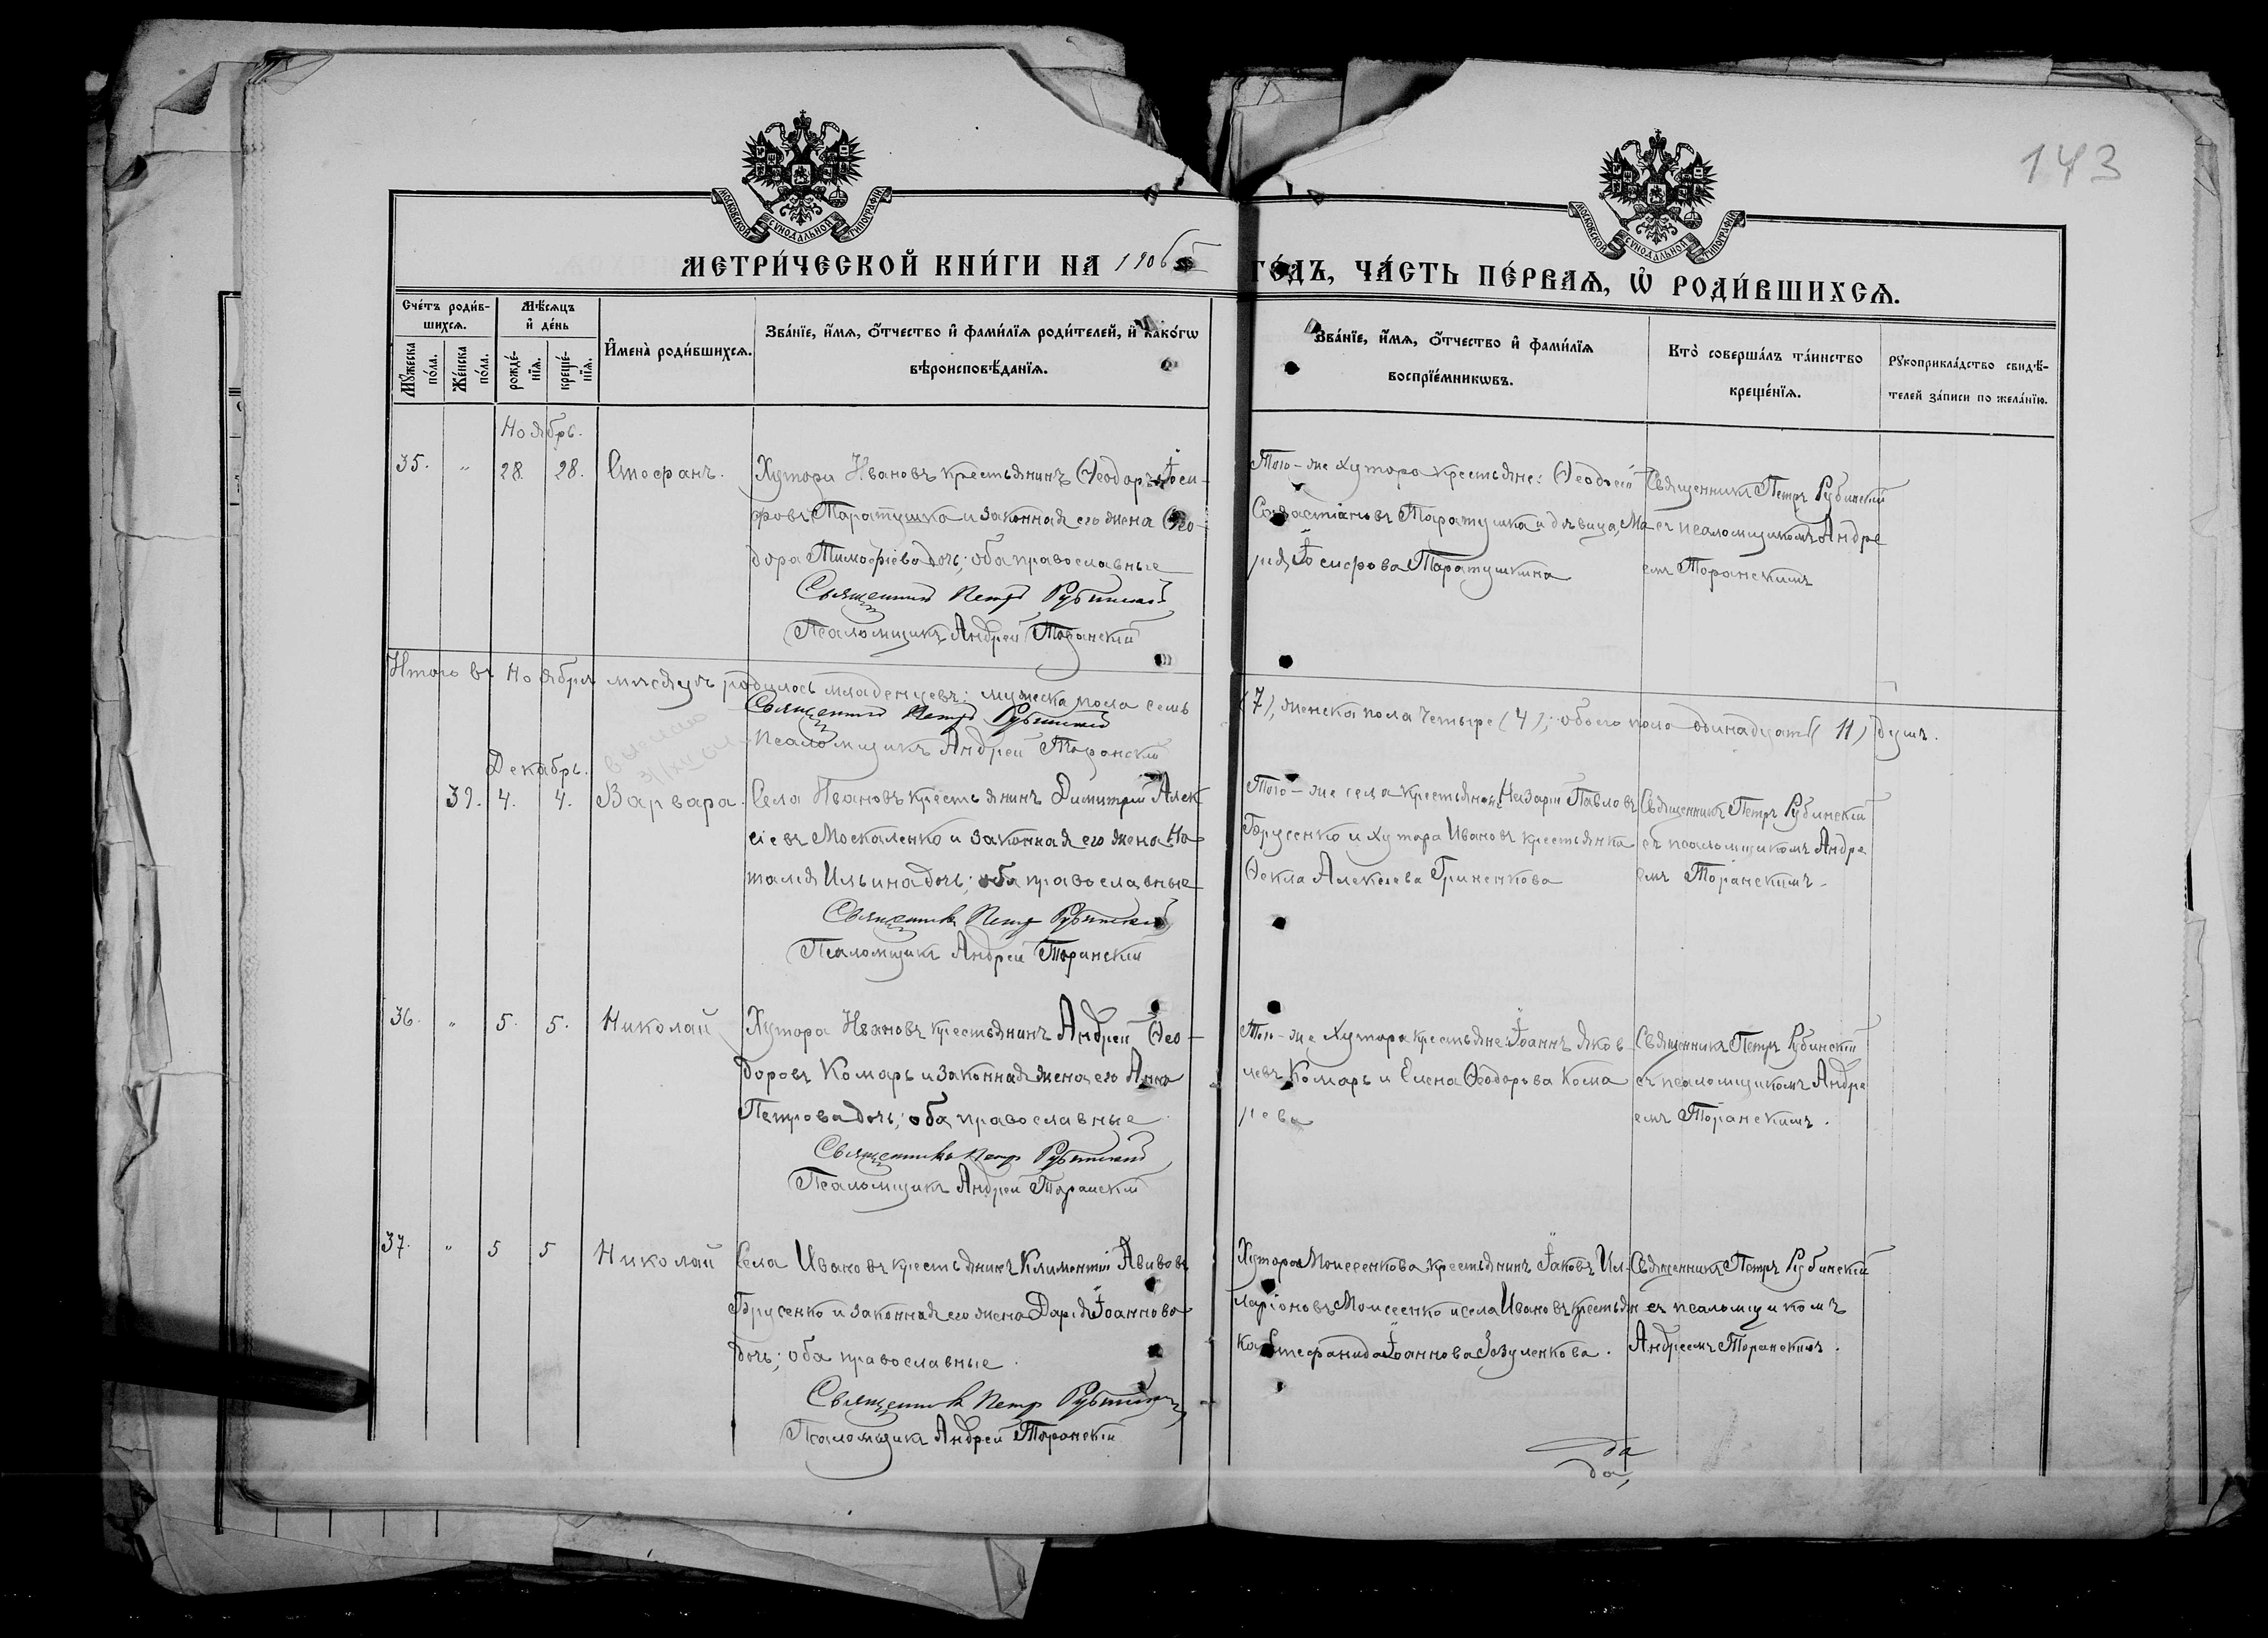 143
МОСКОВСКОЙ СУНОДАЛЬНОЙ ТИПОГРАФІИ
МОСКОВСКОЙ СУНОДАЛЬНОЙ ТИПОГРАФІИ
МЕТРИ́ЧЕСКОЙ КНИ́ГИ НА 1906 ГО́ДЪ, ЧА́СТЬ ПЕ́РВАѦ, Ѡ҆ РОДИ́ВШИХСѦ.
Сче́тъ роди́в-
шихсѧ.
Мѣ́сѧцъ
и҆ де́нь
Мꙋ́жеска
по́ла.
Же́нска
по́ла.
рожде́-
нїѧ.
креще́-
нїѧ.
И҆мена̀ роди́вшихсѧ.
Зва́нїе, и҆́мѧ, о҆́тчество и҆ фами́лїѧ роди́телей, и҆ како́гѡ
вѣроисповѣ́данїѧ.
Зва́нїе, и҆́мѧ, о҆́тчество и҆ фами́лїѧ
воспрїе́мникѡвъ.
Кто̀ соверша́лъ та́инство
креще́нїѧ.
Рꙋкоприкла́дство свидѣ́-
телей за́писи по жела́нїю.
Ноябрь.
35. " 28. 28. Стефанъ.
Хутора Ивановъ крестьянинъ Ѳеодоръ Іоси-
фовъ Таратушка и законная его жена Ѳео-
дора Тимофіева дочь; оба православные
Священникъ Петръ Рубинскій
Псаломщикъ Андрей Торанскій
Того-же хутора крестьяне: Ѳеодосій
Севастіановъ Таратушка и дѣвица, Ма-
рія Іосифова Таратушкина
Священникъ Петръ Рубинскій
съ псаломщикомъ Андре
емъ Торанскимъ
Итого въ Ноябрѣ мѣсяцѣ родилось младенцевъ: мужеска пола семь
(7), женска пола четыре (4); обоего пола одинадцать (11) душъ.
Священникъ Петръ Рубинскій
Псаломщикъ Андрей Торанскій
Декабрь.
39. 4. 4. Варвара.
Села Ивановъ крестьянинъ Димитрій Алек
сіевъ Москаленко и законная его жена На
талія Ильина дочь; оба православные
Священникъ Петръ Рубинскій
Псаломщикъ Андрей Торанскій
Того-же села крестьянинъ Назарій Павловъ
Брусенко и хутора Ивановъ крестьянка
Ѳекла Алексіева Гриненкова
Священникъ Петръ Рубинскій
съ псаломщикомъ Андре
емъ Торанскимъ.
36. " 5. 5. Николай
Хутора Ивановъ крестьянинъ Андрей Ѳео-
доровъ Комарь и законная жена его Анна
Петрова дочь; оба православные
Священникъ Петръ Рубинскій
Псаломщикъ Андрей Торанскій
Того-же Хутора крестьяне: Іоаннъ Яков-
левъ Комарь и Елена Ѳеодорова Кома
рева
Священникъ Петръ Рубинскій
съ псаломщикомъ Андре
емъ Торанскимъ.
37. " 5 5 Николай
Села Ивановъ крестьянинъ Климентій Авивовъ
Брусенко и законная его жена Дарія Іоаннова
дочь; оба православные.
Священникъ Петръ Рубинскій
Псаломщикъ Андрей Торанскій
Хутора Моисеенкова крестьянинъ Іаковъ Ил-
ларіоновъ Моисеенко и села Ивановъ крестьян
ка Стефанида Іоаннова Зозуленкова.
Священникъ Петръ Рубинскій
съ псаломщикомъ
Андреемъ Торанскимъ.